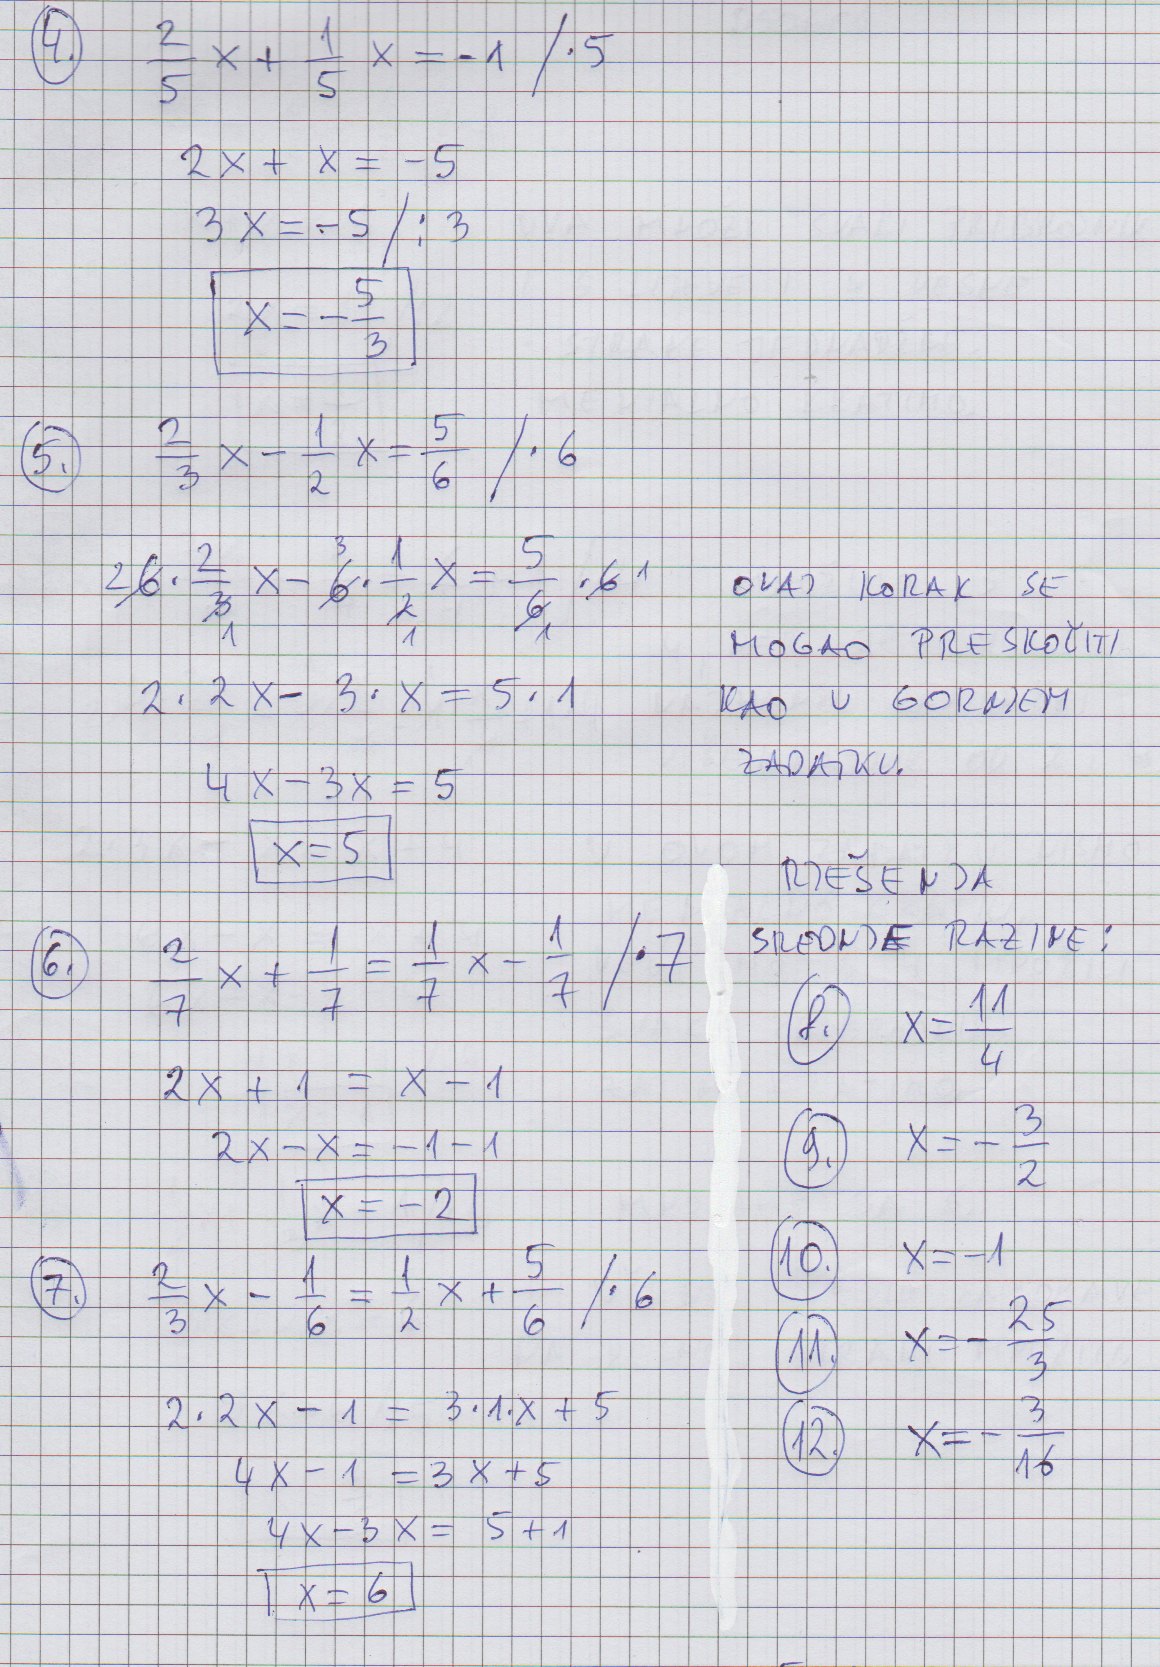 4. 2/5 x + 1/5 x = -1 /·5
2x + x = -5
3x = -5 /:3
x = -5/3
5. 2/3 x - 1/2 x = 5/6 /·6
2 6·2/3 1 x - 3 6·1/2 1 x = 5/6 1 ·6 1
2·2x - 3·x = 5·1
4x - 3x = 5
x = 5
OVAJ KORAK SE
MOGAO PRESKOČITI
KAO U GORNJEM
ZADATKU.
6. 2/7 x + 1/7 = 1/7 x - 1/7 /·7
2x + 1 = x - 1
2x - x = -1 - 1
x = -2
7. 2/3 x - 1/6 = 1/2 x + 5/6 /·6
2·2x - 1 = 3·1·x + 5
4x - 1 = 3x + 5
4x - 3x = 5 + 1
x = 6
RJEŠENJA
SREDNJE RAZINE:
8. x = 11/4
9. x = -3/2
10. x = -1
11. x = -25/3
12. x = -3/16